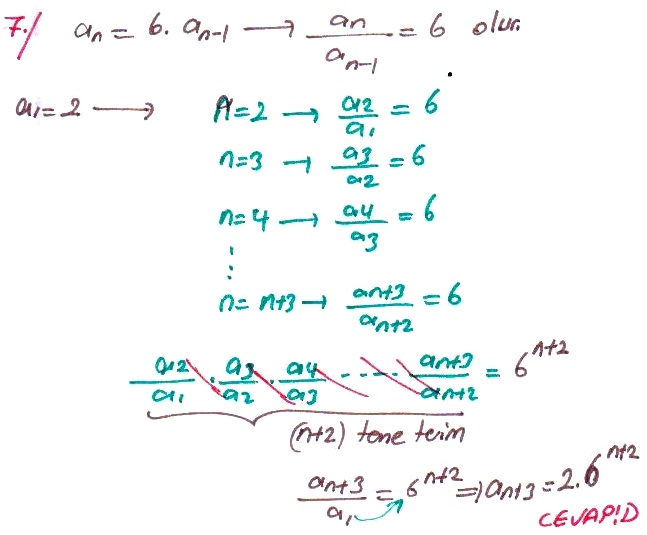 7./ aₙ = 6. aₙ₋₁ → aₙ/aₙ₋₁ = 6 olur.
a₁=2 → n=2 → a₂/a₁ = 6
n=3 → a₃/a₂ = 6
n=4 → a₄/a₃ = 6
⋮
n= n+3 → aₙ₊₃/aₙ₊₂ = 6
a₂/a₁ . a₃/a₂ . a₄/a₃ ..... aₙ₊₃/aₙ₊₂ = 6ⁿ⁺²
(n+2) tane terim
aₙ₊₃/a₁ = 6ⁿ⁺² ⇒ aₙ₊₃ = 2.6ⁿ⁺²
CEVAP!D